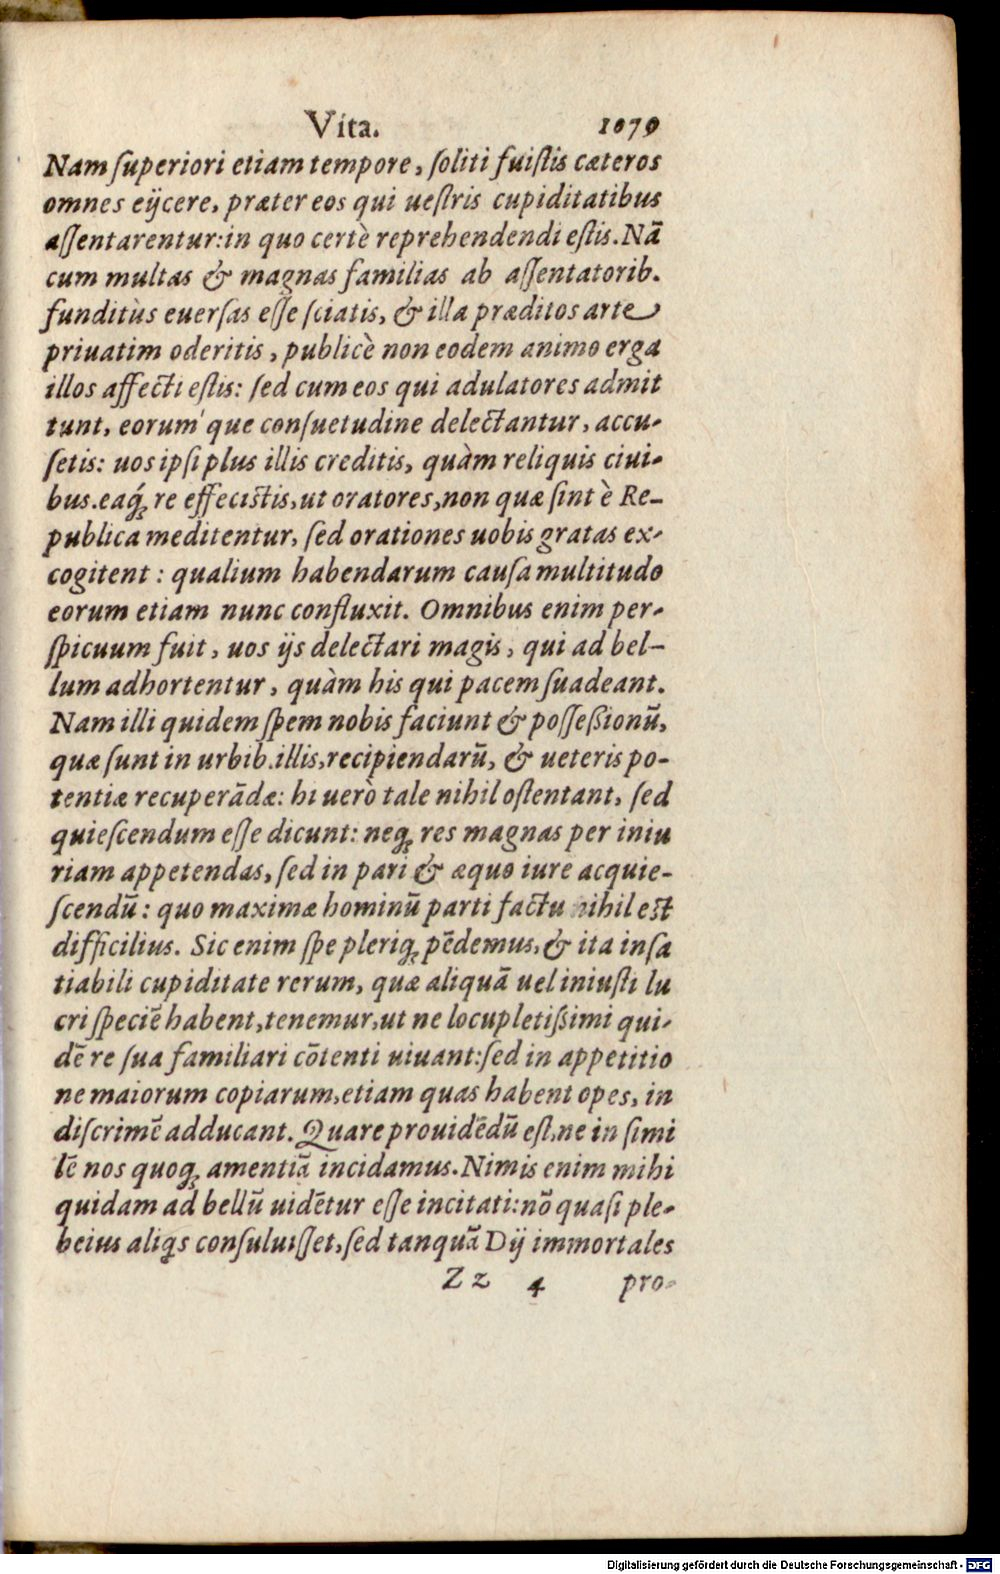 Vita. 1079
Nam ſuperiori etiam tempore, ſoliti fuiſtis cæteros
omnes eijcere, præter eos qui ueſtris cupiditatibus
aſſentarentur: in quo certè reprehendendi eſtis. Nã
cum multas & magnas familias ab aſſentatorib.
funditùs euerſas eſſe ſciatis, & illa præditos arte
priuatim oderitis, publicè non eodem animo erga
illos affecti eſtis: ſed cum eos qui adulatores admit
tunt, eorum´que conſuetudine delectantur, accu-
ſetis: uos ipſi plus illis creditis, quàm reliquis ciui-
bus. eaq́ꝫ re effeciſtis, ut oratores, non quæ ſint è Re-
publica meditentur, ſed orationes uobis gratas ex-
cogitent: qualium habendarum cauſa multitudo
eorum etiam nunc confluxit. Omnibus enim per-
ſpicuum fuit, uos ijs delectari magis, qui ad bel-
lum adhortentur, quàm his qui pacem ſuadeant.
Nam illi quidem ſpem nobis faciunt & poſſeßionũ,
quæ ſunt in urbib. illis, recipiendarũ, & ueteris po-
tentiæ recuperãdæ: hi uerò tale nihil oſtentant, ſed
quieſcendum eſſe dicunt: neqꝫ res magnas per iniu
riam appetendas, ſed in pari & æquo iure acquie-
ſcendũ: quo maximæ hominũ parti factu nihil eſt
difficilius. Sic enim ſpe pleriqꝫ pẽdemus, & ita inſa
tiabili cupiditate rerum, quæ aliquã uel iniuſti lu
cri ſpeciẽ habent, tenemur, ut ne locupletißimi qui-
dẽ re ſua familiari cõtenti uiuant: ſed in appetitio
ne maiorum copiarum, etiam quas habent opes, in
diſcrimẽ adducant. Quare prouidẽdũ eſt, ne in ſimi
lẽ nos quoqꝫ amentiã incidamus. Nimis enim mihi
quidam ad bellũ uidẽtur eſſe incitati: nõ quaſi ple-
beius aliqs conſuluiſſet, ſed tanquã Dij immortales
Zz 4 pro-
Digitalisierung gefördert durch die Deutsche Forschungsgemeinschaft - DFG